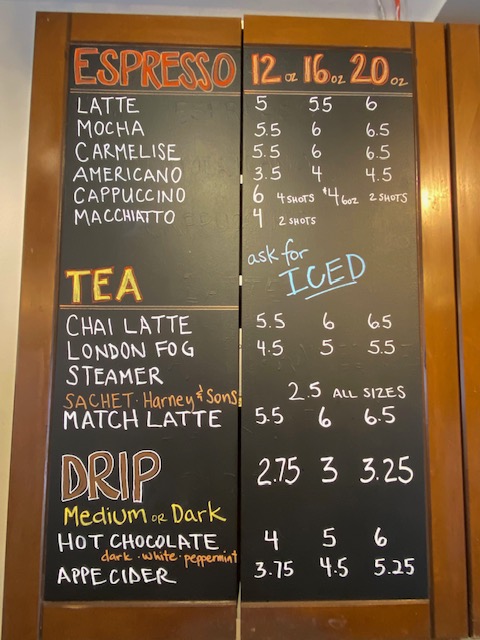 ESPRESSO 12 oz 16 oz 20 oz
LATTE 5 5.5 6
MOCHA 5.5 6 6.5
CARMELISE 5.5 6 6.5
AMERICANO 3.5 4 4.5
CAPPUCCINO 6 4 SHOTS $4 6oz 2 SHOTS
MACCHIATTO 4 2 SHOTS
ask for
ICED
TEA
CHAI LATTE 5.5 6 6.5
LONDON FOG 4.5 5 5.5
STEAMER
SACHET · Harney & Sons 2.5 ALL SIZES
MATCH LATTE 5.5 6 6.5
DRIP 2.75 3 3.25
Medium or Dark
HOT CHOCOLATE 4 5 6
dark · white · peppermint
APPE CIDER 3.75 4.5 5.25